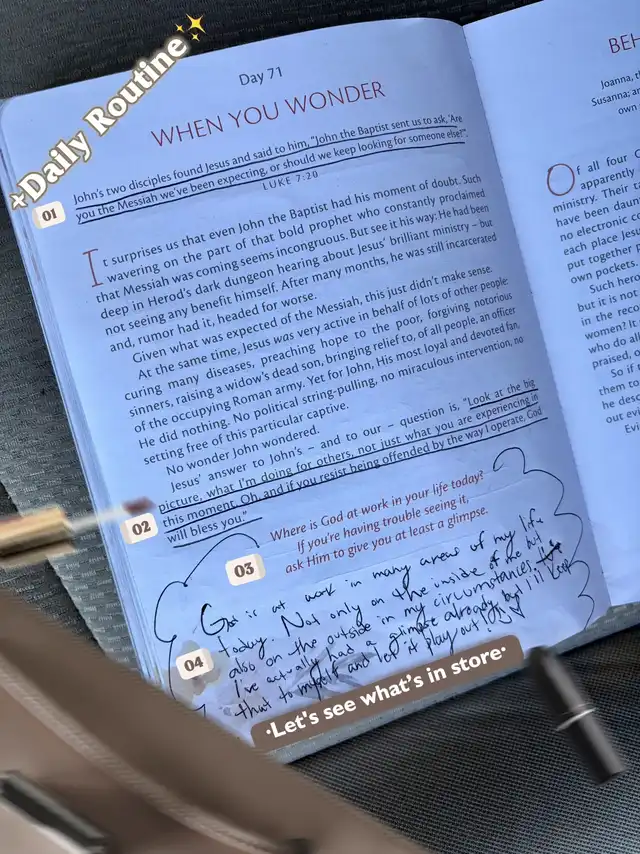 +Daily Routine
Day 71
WHEN YOU WONDER
01
John's two disciples found Jesus and said to him, "John the Baptist sent us to ask, 'Are
you the Messiah we've been expecting, or should we keep looking for someone else?'".
LUKE 7:20
It surprises us that even John the Baptist had his moment of doubt. Such
wavering on the part of that bold prophet who constantly proclaimed
that Messiah was coming seems incongruous. But see it his way: He had been
deep in Herod's dark dungeon hearing about Jesus' brilliant ministry – but
not seeing any benefit himself. After many months, he was still incarcerated
and, rumor had it, headed for worse.
Given what was expected of the Messiah, this just didn't make sense.
At the same time, Jesus was very active in behalf of lots of other people:
curing many diseases, preaching hope to the poor, forgiving notorious
sinners, raising a widow's dead son, bringing relief to, of all people, an officer
of the occupying Roman army. Yet for John, His most loyal and devoted fan,
He did nothing. No political string-pulling, no miraculous intervention, no
setting free of this particular captive.
No wonder John wondered.
Jesus' answer to John's – and to our – question is, "Look at the big
picture, what I'm doing for others, not just what you are experiencing in
this moment. Oh, and if you resist being offended by the way I operate, God
will bless you."
02
Where is God at work in your life today?
If you're having trouble seeing it,
ask Him to give you at least a glimpse.
03
God is at work in many areas of my life
today. Not only on the inside of me but
also on the outside in my circumstances.
04
I've actually had a glimpse already but I'll keep
that to myself and let it play out
·Let's see what's in store·
BEH
Joanna, th
Susanna; an
own
Of all four G
apparently
ministry. Their
have been daun
no electronic
each place Jesu
put together
own pockets.
Such hero
but it is not
in the reco
women? It
who do all
praised,
So if
them to
he desc
out ex
Evi